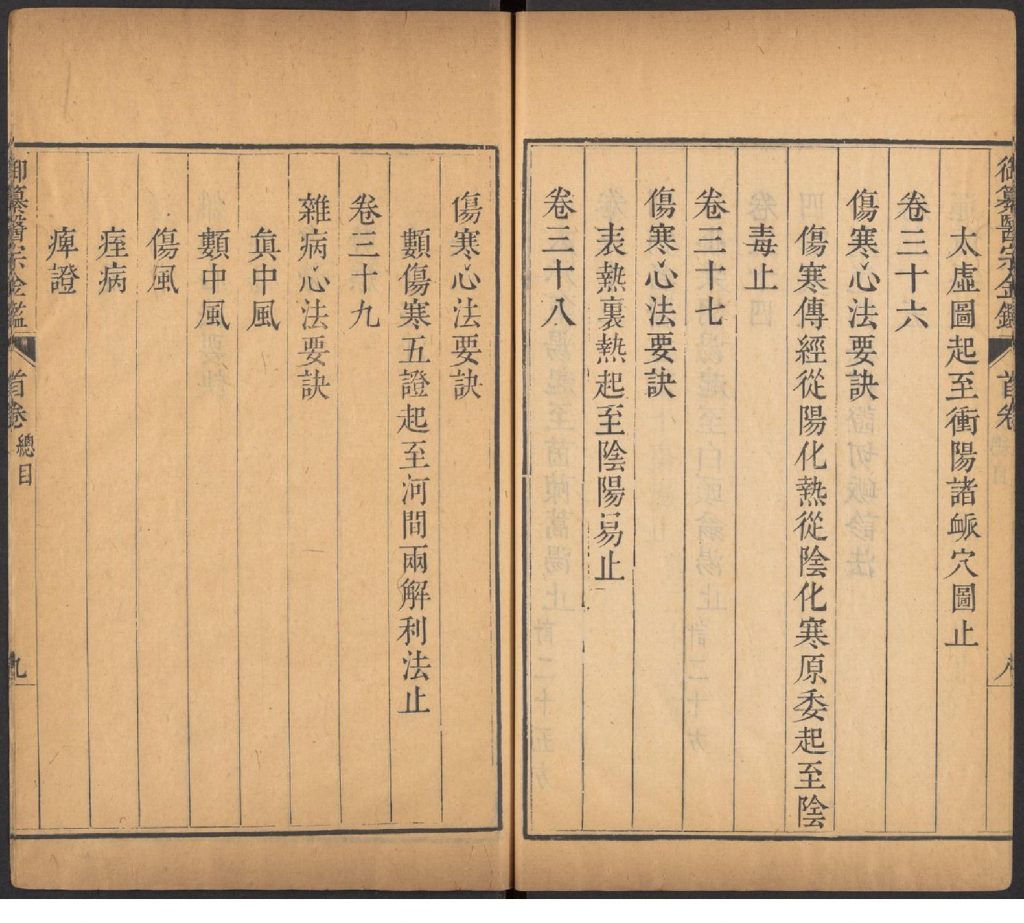 御纂醫宗金鑑 首卷 八
太虛圖起至衝陽諸䘑穴圖止
卷三十六
傷寒心法要訣
傷寒傳經從陽化熱從陰化寒原委起至陰
毒止
卷三十七
傷寒心法要訣
表熱裏熱起至陰陽易止
卷三十八
傷寒心法要訣
類傷寒五證起至河間兩解利法止
卷三十九
雜病心法要訣
眞中風
類中風
傷風
痓病
痺證
御纂醫宗金鑑 首卷 總目 九